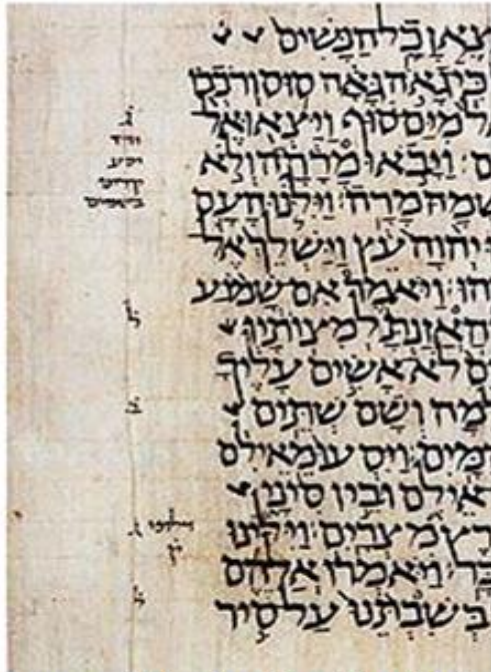 צֶאןָ כָל הַנָּשִׁים
כִּי גָאֹה גָּאָה סוּס וְרֹכְבוֹ
ל מִיַּם סוּף וַיֵּצְאוּ אֶל
ם׃ וַיָּבֹאוּ מָרָתָה וְלֹא
שְׁמָהּ מָרָה׃ וַיִּלֹּנוּ הָעָם
יְהוָה עֵץ וַיַּשְׁלֵךְ אֶל
הוּ׃ וַיֹּאמֶר אִם שָׁמוֹעַ
הַאֲזַנְתָּ לְמִצְוֹתָיו
ם לֹא אָשִׂים עָלֶיךָ
מָה וְשָׁם שְׁתֵּים
מָּיִם׃ וַיִּסְעוּ מֵאֵילִם
אֵילִם וּבֵין סִינַי
רֶץ מִצְרָיִם׃ וַיִּלִּינוּ
בָּר׃ וַיֹּאמְרוּ אֲלֵהֶם
בְּשִׁבְתֵּנוּ עַל סִיר